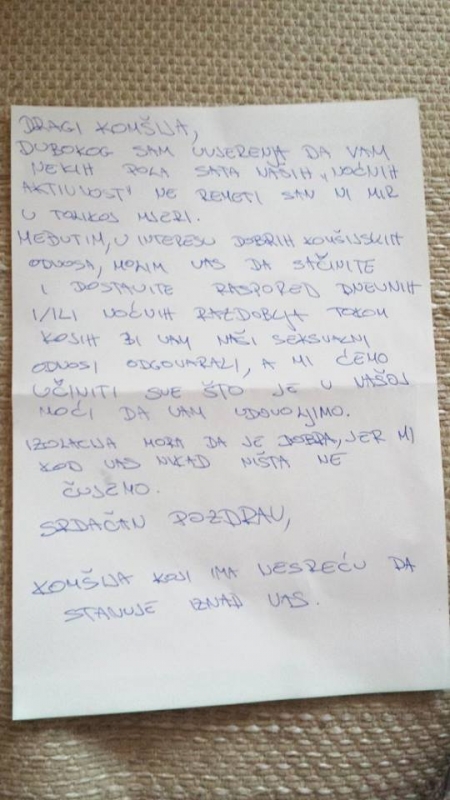 DRAGI KOMŠIJA,
DUBOKOG SAM UVJERENJA DA VAM
NEKIH POLA SATA NAŠIH „NOĆNIH
AKTIVNOSTI" NE REMETI SAN NI MIR
U TOLIKOJ MJERI.
MEĐUTIM, U INTERESU DOBRIH KOMŠIJSKIH
ODNOSA, MOLIM VAS DA SAČINITE
I DOSTAVITE RASPORED DNEVNIH
I/ILI NOĆNIH RAZDOBLJA TOKOM
KOJIH BI VAM NAŠI SEKSUALNI
ODNOSI ODGOVARALI, A MI ĆEMO
UČINITI SVE ŠTO JE U VAŠOJ
MOĆI DA VAM UDOVOLJIMO.
IZOLACIJA MORA DA JE DOBRA, JER MI
KOD VAS NIKAD NIŠTA NE
ČUJEMO.
SRDAČAN POZDRAV,
KOMŠIJA KOJI IMA NESREĆU DA
STANUJE IZNAD VAS.